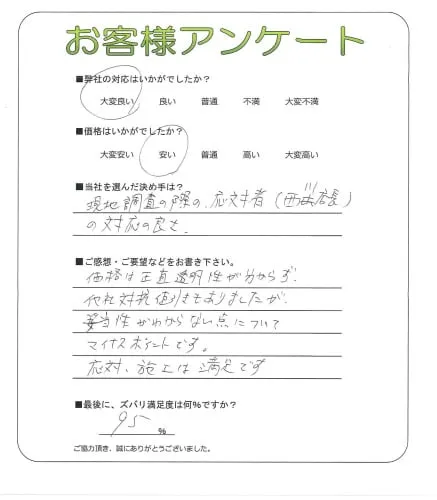 お客様アンケート
■弊社の対応はいかがでしたか?
大変良い 良い 普通 不満 大変不満
■価格はいかがでしたか?
大変安い 安い 普通 高い 大変高い
■当社を選んだ決め手は?
現地調査の際の、応対者(西川店長)
の対応の良さ、
■ご感想・ご要望などをお書き下さい。
価格は正直透明性が分からず、
他社対抗値引きもありましたが、
妥当性がわからない点について
マイナスポイントです。
応対、施工は満足です
■最後に、ズバリ満足度は何%ですか?
95 %
ご協力頂き、誠にありがとうございました。